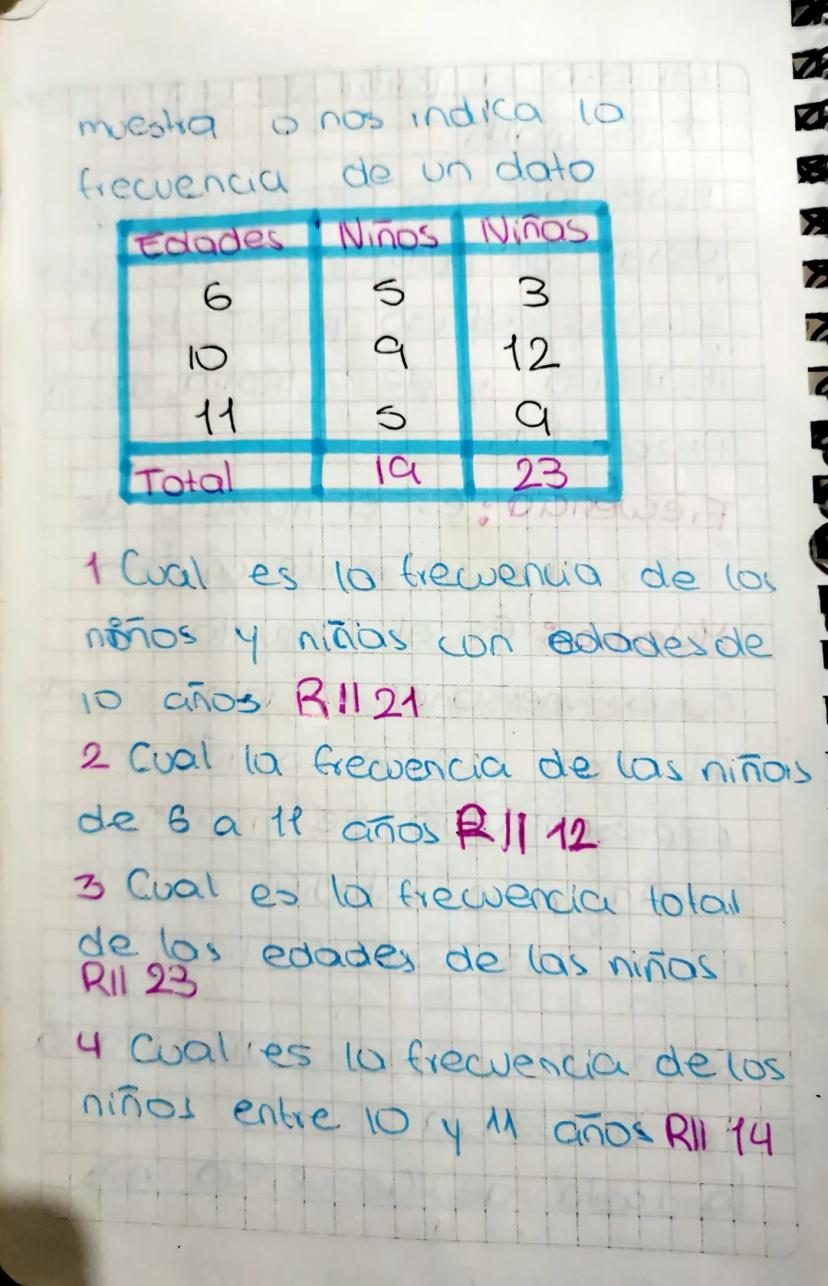 muestra o nos indica la
frecuencia de un dato
Edades Niños Niñas
6 5 3
10 9 12
11 5 9
Total 19 23
1 Cual es la frecuencia de los
niños y niñas con edades de
10 años R// 21
2 Cual la frecuencia de las niñas
de 6 a 11 años R// 12
3 Cual es la frecuencia total
de las edades de las niñas
R// 23
4 Cual es la frecuencia de los
niños entre 10 y 11 años R// 14